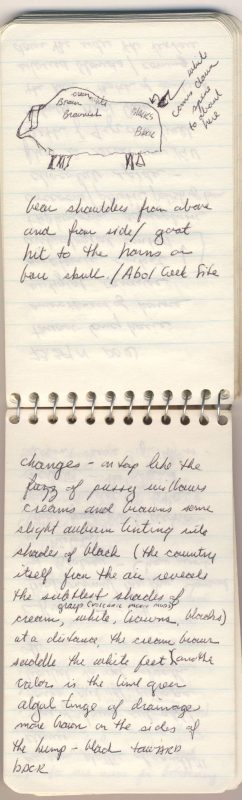 cream white
Brown
Brownish
Blacks
Black
white
comes down
spine
to about
here
bear shoulders from above
and from side/ goat
hit to the horns on
bare skull / Abol Creek Site
changes - on top like the
fuzz of pussy willows
creams and browns some
slight auburn tinting into
shades of black (the country
itself from the air reveals
the subtlest shades of
group
cream, white, browns, blacks)
at a distance the cream brown
saddle the white feet (another
color is the lime green
algal tinge of drainage
more brown on the sides of
the hump - black TOWARD
BACK